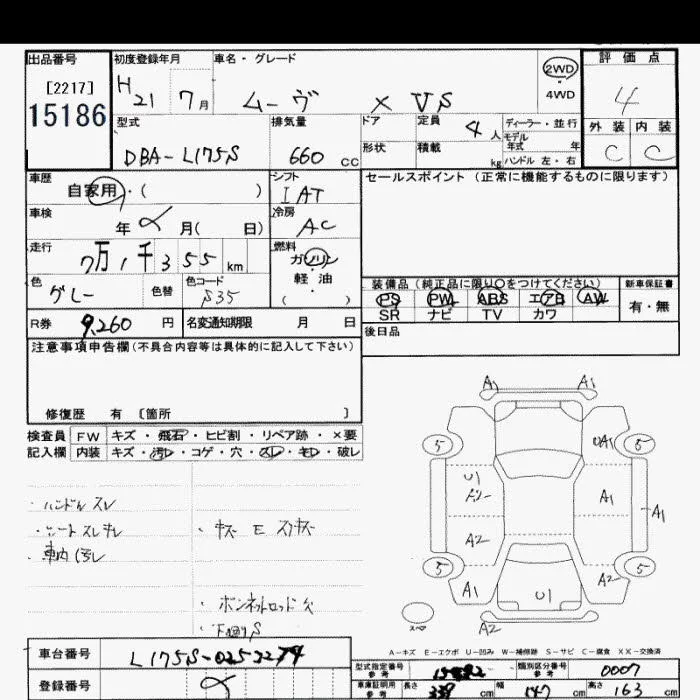 出品番号 初度登録年月 車名・グレード 2WD 評価点
[2217] H21 7月 ムーヴ X VS 4WD 4
15186 型式 排気量 ドア 定員 4人 ディーラー・並行 外装 内装
DBA-L175S 660cc 形状 積載 kg モデル年式 年 ハンドル 左・右 C C
車歴 シフト セールスポイント(正常に機能するものに限ります)
自家用・( ) IAT
車検 冷房
年 月( 日) AC
走行 燃料
7万1千355km ガソリン・軽油
色 色替 色コード ( )
グレー S35
装備品(純正品に限り○をつけてください) 新車保証書
PS PW ABS エアB AW 有・無
SR ナビ TV カワ
R券 9,260円 名変通知期限 月 日 後日品
注意事項申告欄(不具合内容等は具体的に記入して下さい)
修復歴 有〔箇所 〕
検査員 FW キズ・飛石・ヒビ割・リペア跡・×要
記入欄 内装 キズ・汚レ・コゲ・穴・スレ・キレ・破レ
・ハンドル スレ
・シートスレキレ
・車内汚レ
・キズ E スリキズ
・ボンネットロッド欠
・下回りS
A1 A1
5 UA1 5
U1 A1 A1
A2
5 A1 U1 A2 5
スペア A2
A-キズ E-エクボ U-凹み W-補修跡 S-サビ C-腐食 XX-交換済
車台番号 L175S-0252279
登録番号
型式指定番号 参考 類別区分番号 参考 0007
車庫証明用 参考 長さ 339cm 幅 147cm 高さ 163cm